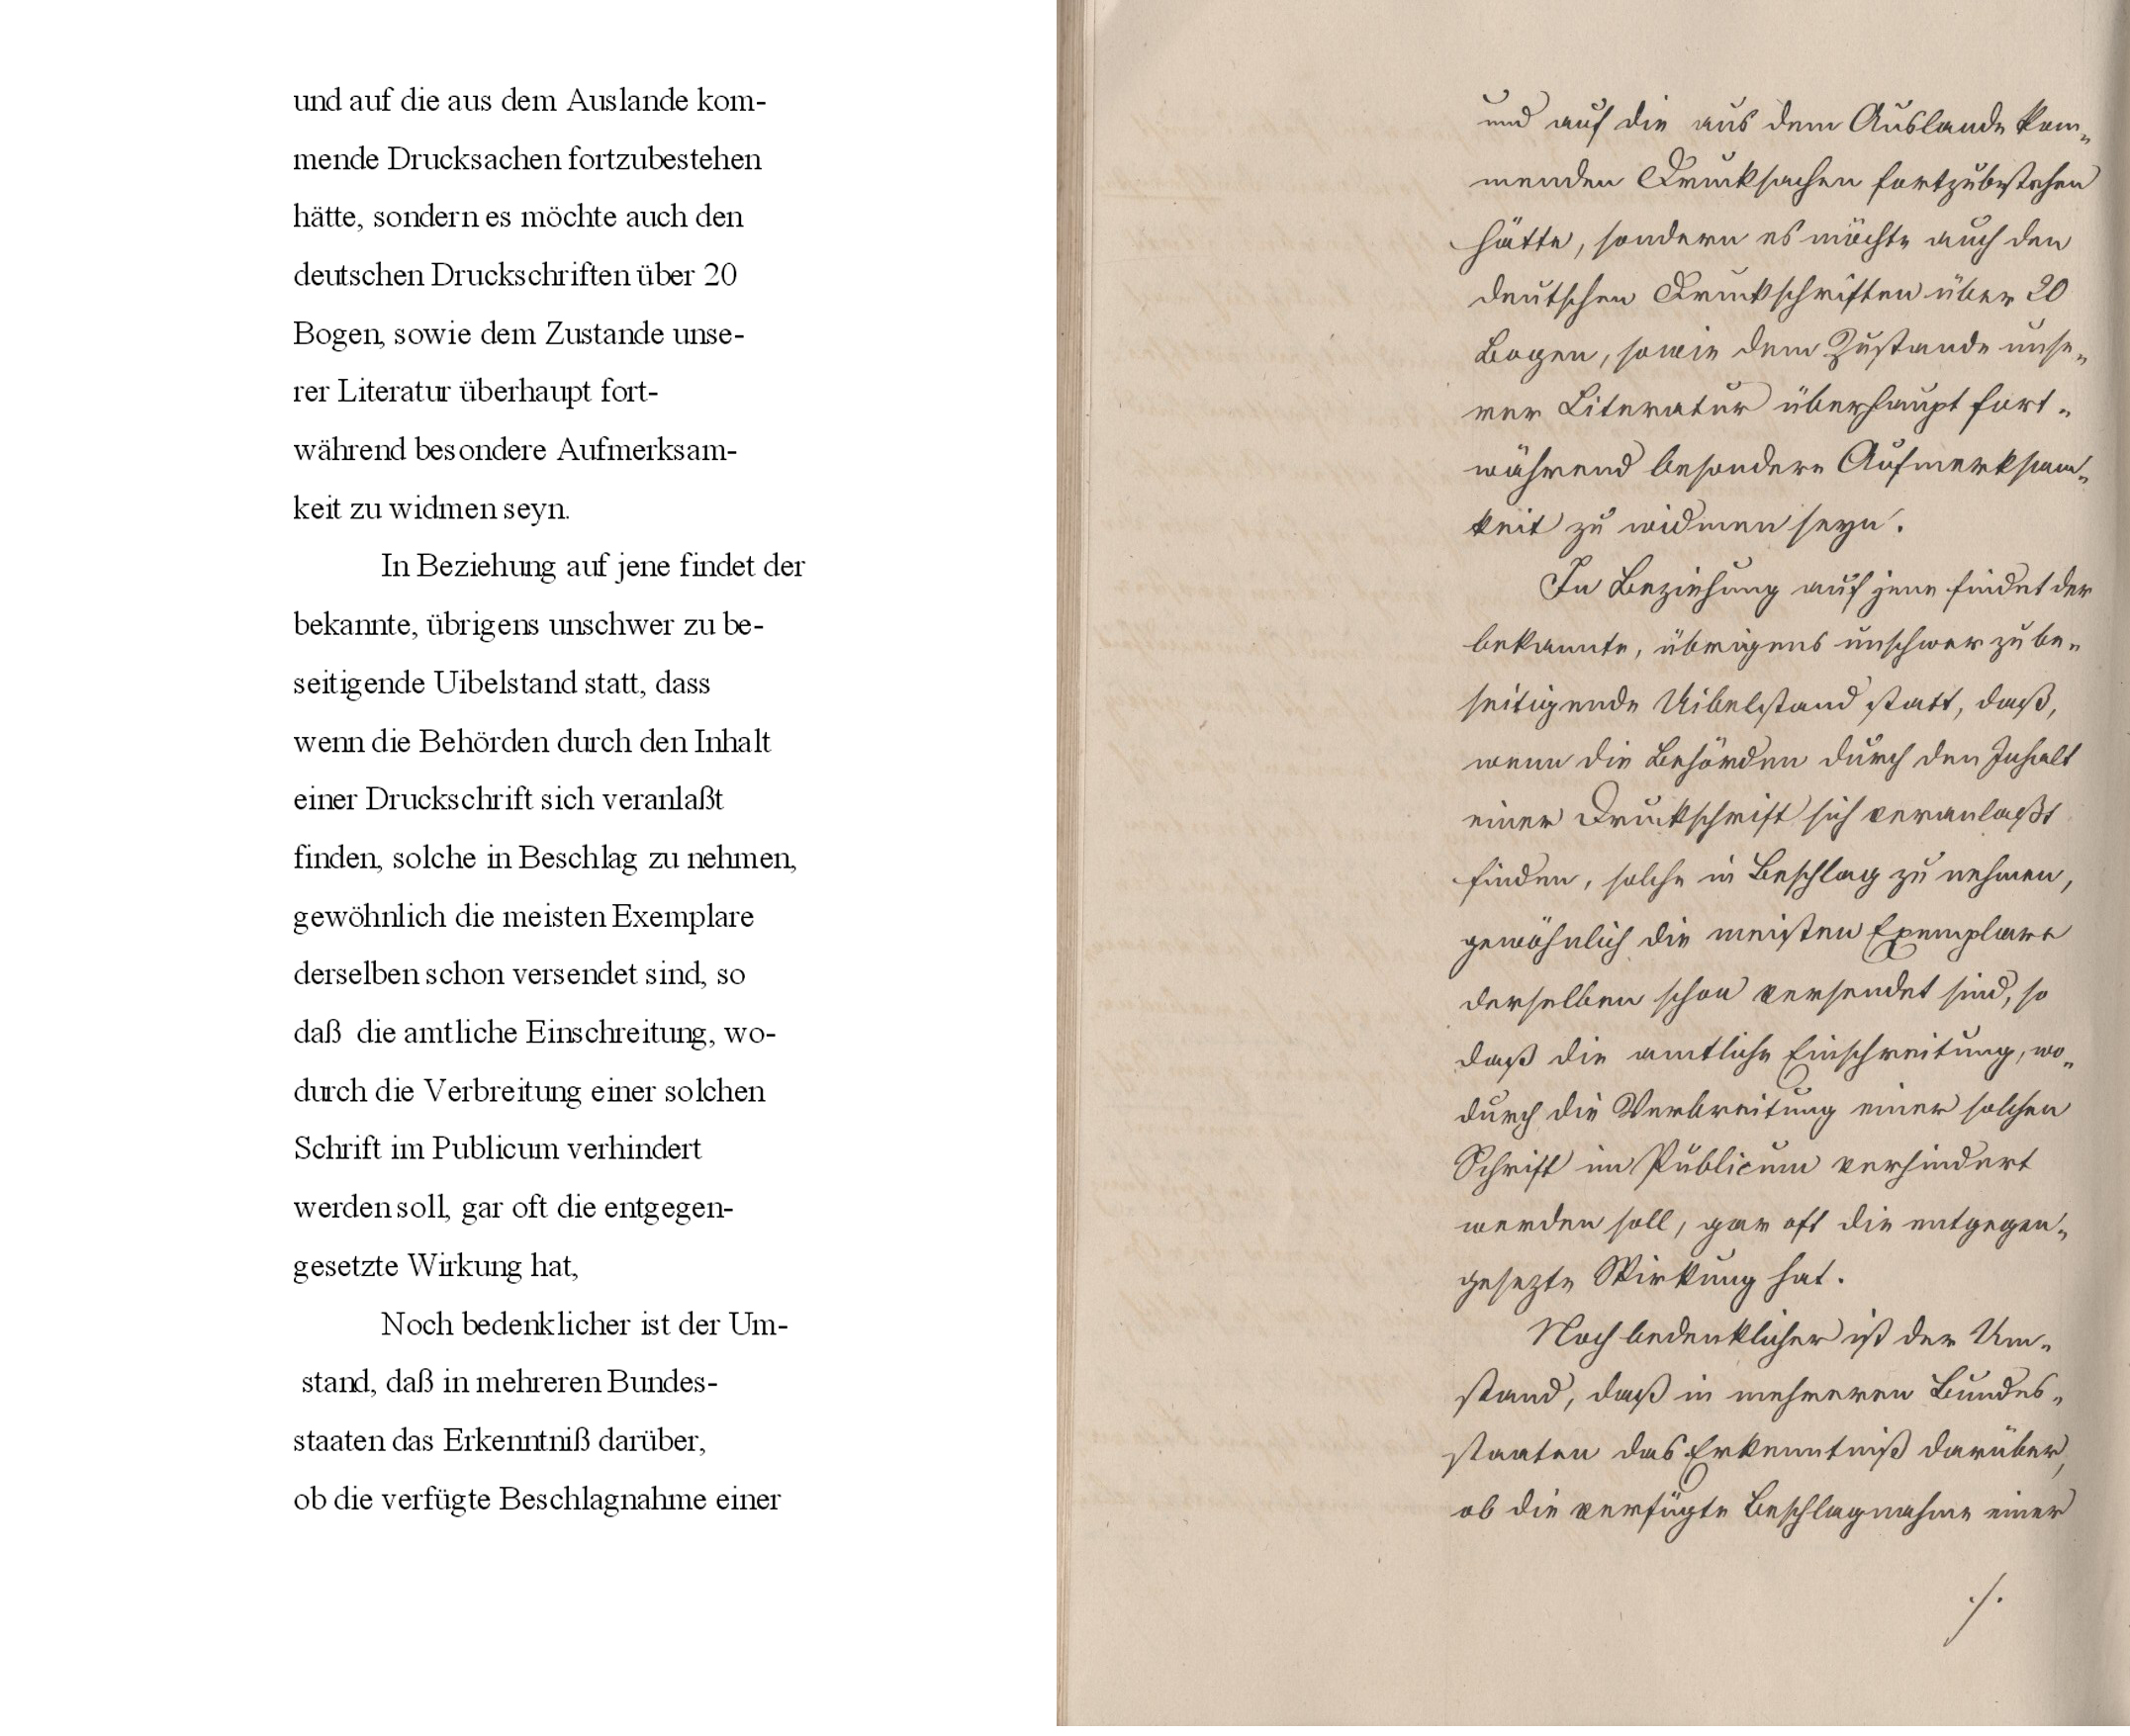 und auf die aus dem Auslande kom-
mende Drucksachen fortzubestehen
hätte, sondern es möchte auch den
deutschen Druckschriften über 20
Bogen, sowie dem Zustande unse-
rer Literatur überhaupt fort-
während besondere Aufmerksam-
keit zu widmen seyn.
In Beziehung auf jene findet der
bekannte, übrigens unschwer zu be-
seitigende Uibelstand statt, dass
wenn die Behörden durch den Inhalt
einer Druckschrift sich veranlaßt
finden, solche in Beschlag zu nehmen,
gewöhnlich die meisten Exemplare
derselben schon versendet sind, so
daß die amtliche Einschreitung, wo-
durch die Verbreitung einer solchen
Schrift im Publicum verhindert
werden soll, gar oft die entgegen-
gesetzte Wirkung hat,
Noch bedenklicher ist der Um-
stand, daß in mehreren Bundes-
staaten das Erkenntniß darüber,
ob die verfügte Beschlagnahme einer
und auf die aus dem Auslande kom-
menden Drucksachen fortzubestehen
hätte, sondern es möchte auch den
deutschen Druckschriften über 20
Bogen, sowie dem Zustande unse-
rer Literatur überhaupt fort-
während besondere Aufmerksam-
keit zu widmen seyn.
In Beziehung auf jene findet der
bekannte, übrigens unschwer zu be-
seitigende Uibelstand statt, daß,
wenn die Behörden durch den Inhalt
einer Druckschrift sich veranlaßt
finden, solche in Beschlag zu nehmen,
gewöhnlich die meisten Exemplare
derselben schon versendet sind, so
daß die amtliche Einschreitung, wo-
durch die Verbreitung einer solchen
Schrift im Publicum verhindert
werden soll, gar oft die entgegen-
gesezte Wirkung hat.
Noch bedenklicher ist der Um-
stand, daß in mehreren Bundes-
staaten das Erkenntniß darüber,
ob die verfügte Beschlagnahme einer
./.